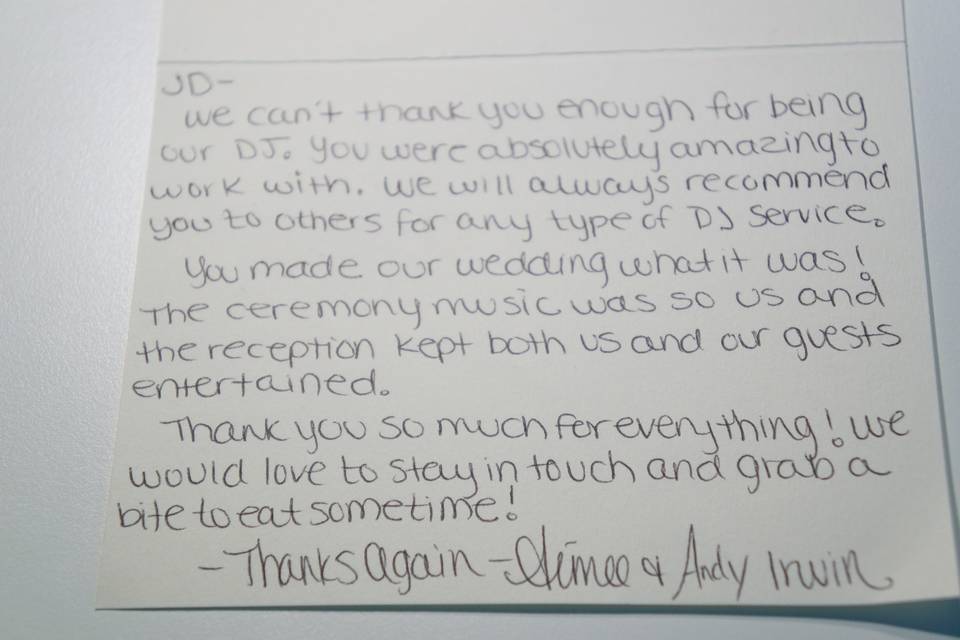 JD-
we can't thank you enough for being
our DJ. You were absolutely amazing to
work with. We will always recommend
you to others for any type of DJ service.
You made our wedding what it was!
The ceremony music was so us and
the reception kept both us and our guests
entertained.
Thank you so much for everything! We
would love to stay in touch and grab a
bite to eat sometime!
- Thanks again - Aimee & Andy Irwin